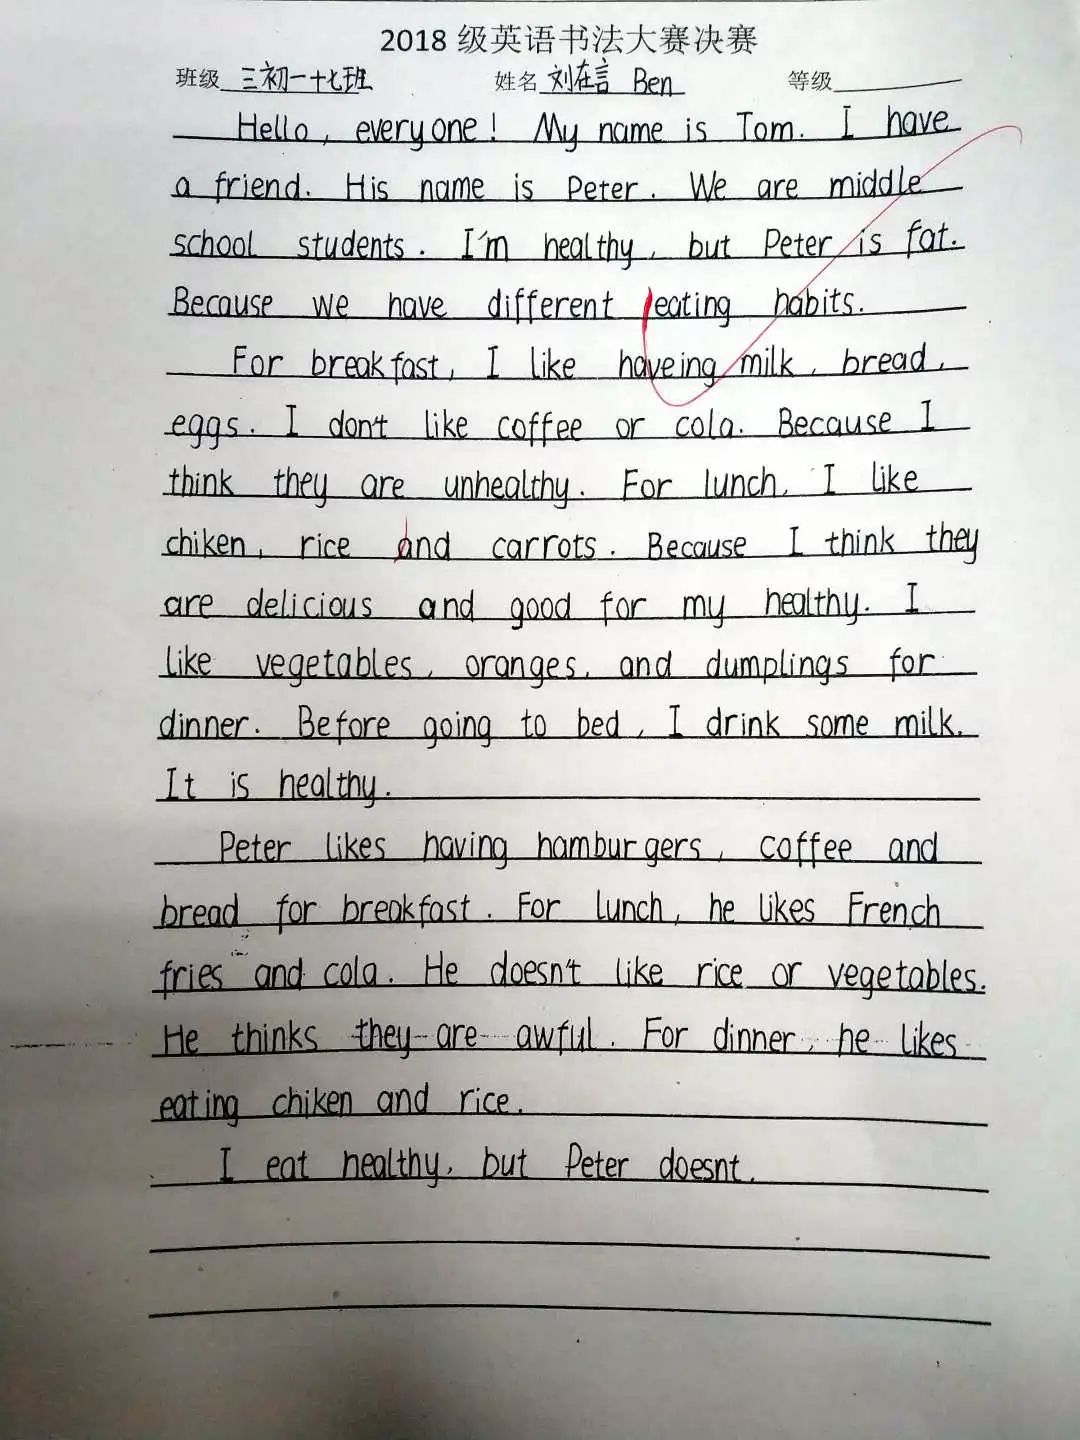 2018 级英语书法大赛决赛
班级 三初一十七班 姓名 刘在言 Ben 等级
Hello, everyone! My name is Tom. I have
a friend. His name is Peter. We are middle
school students. I'm healthy, but Peter is fat.
Because we have different eating habits.
For breakfast, I like haveing milk, bread,
eggs. I don't like coffee or cola. Because I
think they are unhealthy. For lunch, I like
chiken, rice and carrots. Because I think they
are delicious and good for my healthy. I
like vegetables, oranges, and dumplings for
dinner. Before going to bed, I drink some milk.
It is healthy.
Peter likes having hamburgers, coffee and
bread for breakfast. For lunch, he likes French
fries and cola. He doesn't like rice or vegetables.
He thinks they are awful. For dinner, he likes
eating chiken and rice.
I eat healthy, but Peter doesnt.